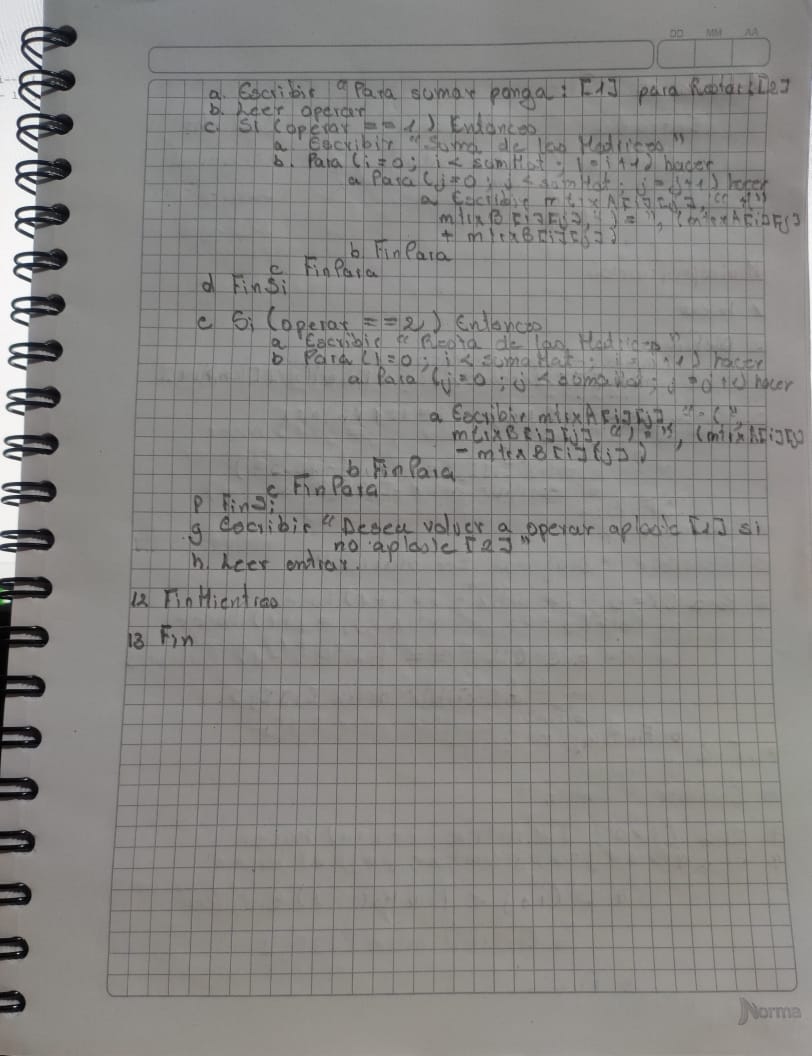 DD MM AA
a. Escribir "Para sumar ponga: [1] para Restar: [2]
b. Leer operar
c Si (operar == 1) Entonces
a Escribir "Suma de las Matrices"
b. Para (i=0; i < sumMat; i=i+1) hacer
a Para (j=0; j < sumMat; j=j+1) hacer
a Escribir mtrxA[i][j], "+("
mtrxB[i][j], ") = ", (mtrxA[i][j]
+ mtrxB[i][j])
b FinPara
c FinPara
d FinSi
e Si (operar == 2) Entonces
a Escribir "Resta de las Matrices"
b Para (i=0; i < sumaMat; i=i+1) hacer
a Para (j=0; j < sumaMat; j=j+1) hacer
a Escribir mtrxA[i][j], "-(",
mtrxB[i][j], ") = ", (mtrxA[i][j]
- mtrxB[i][j])
b FinPara
c FinPara
f FinSi
g Escribir "Desea volver a operar aplaste [1] si
no aplaste [2]"
h. Leer entrar.
12 FinMientras
13 Fin
Norma